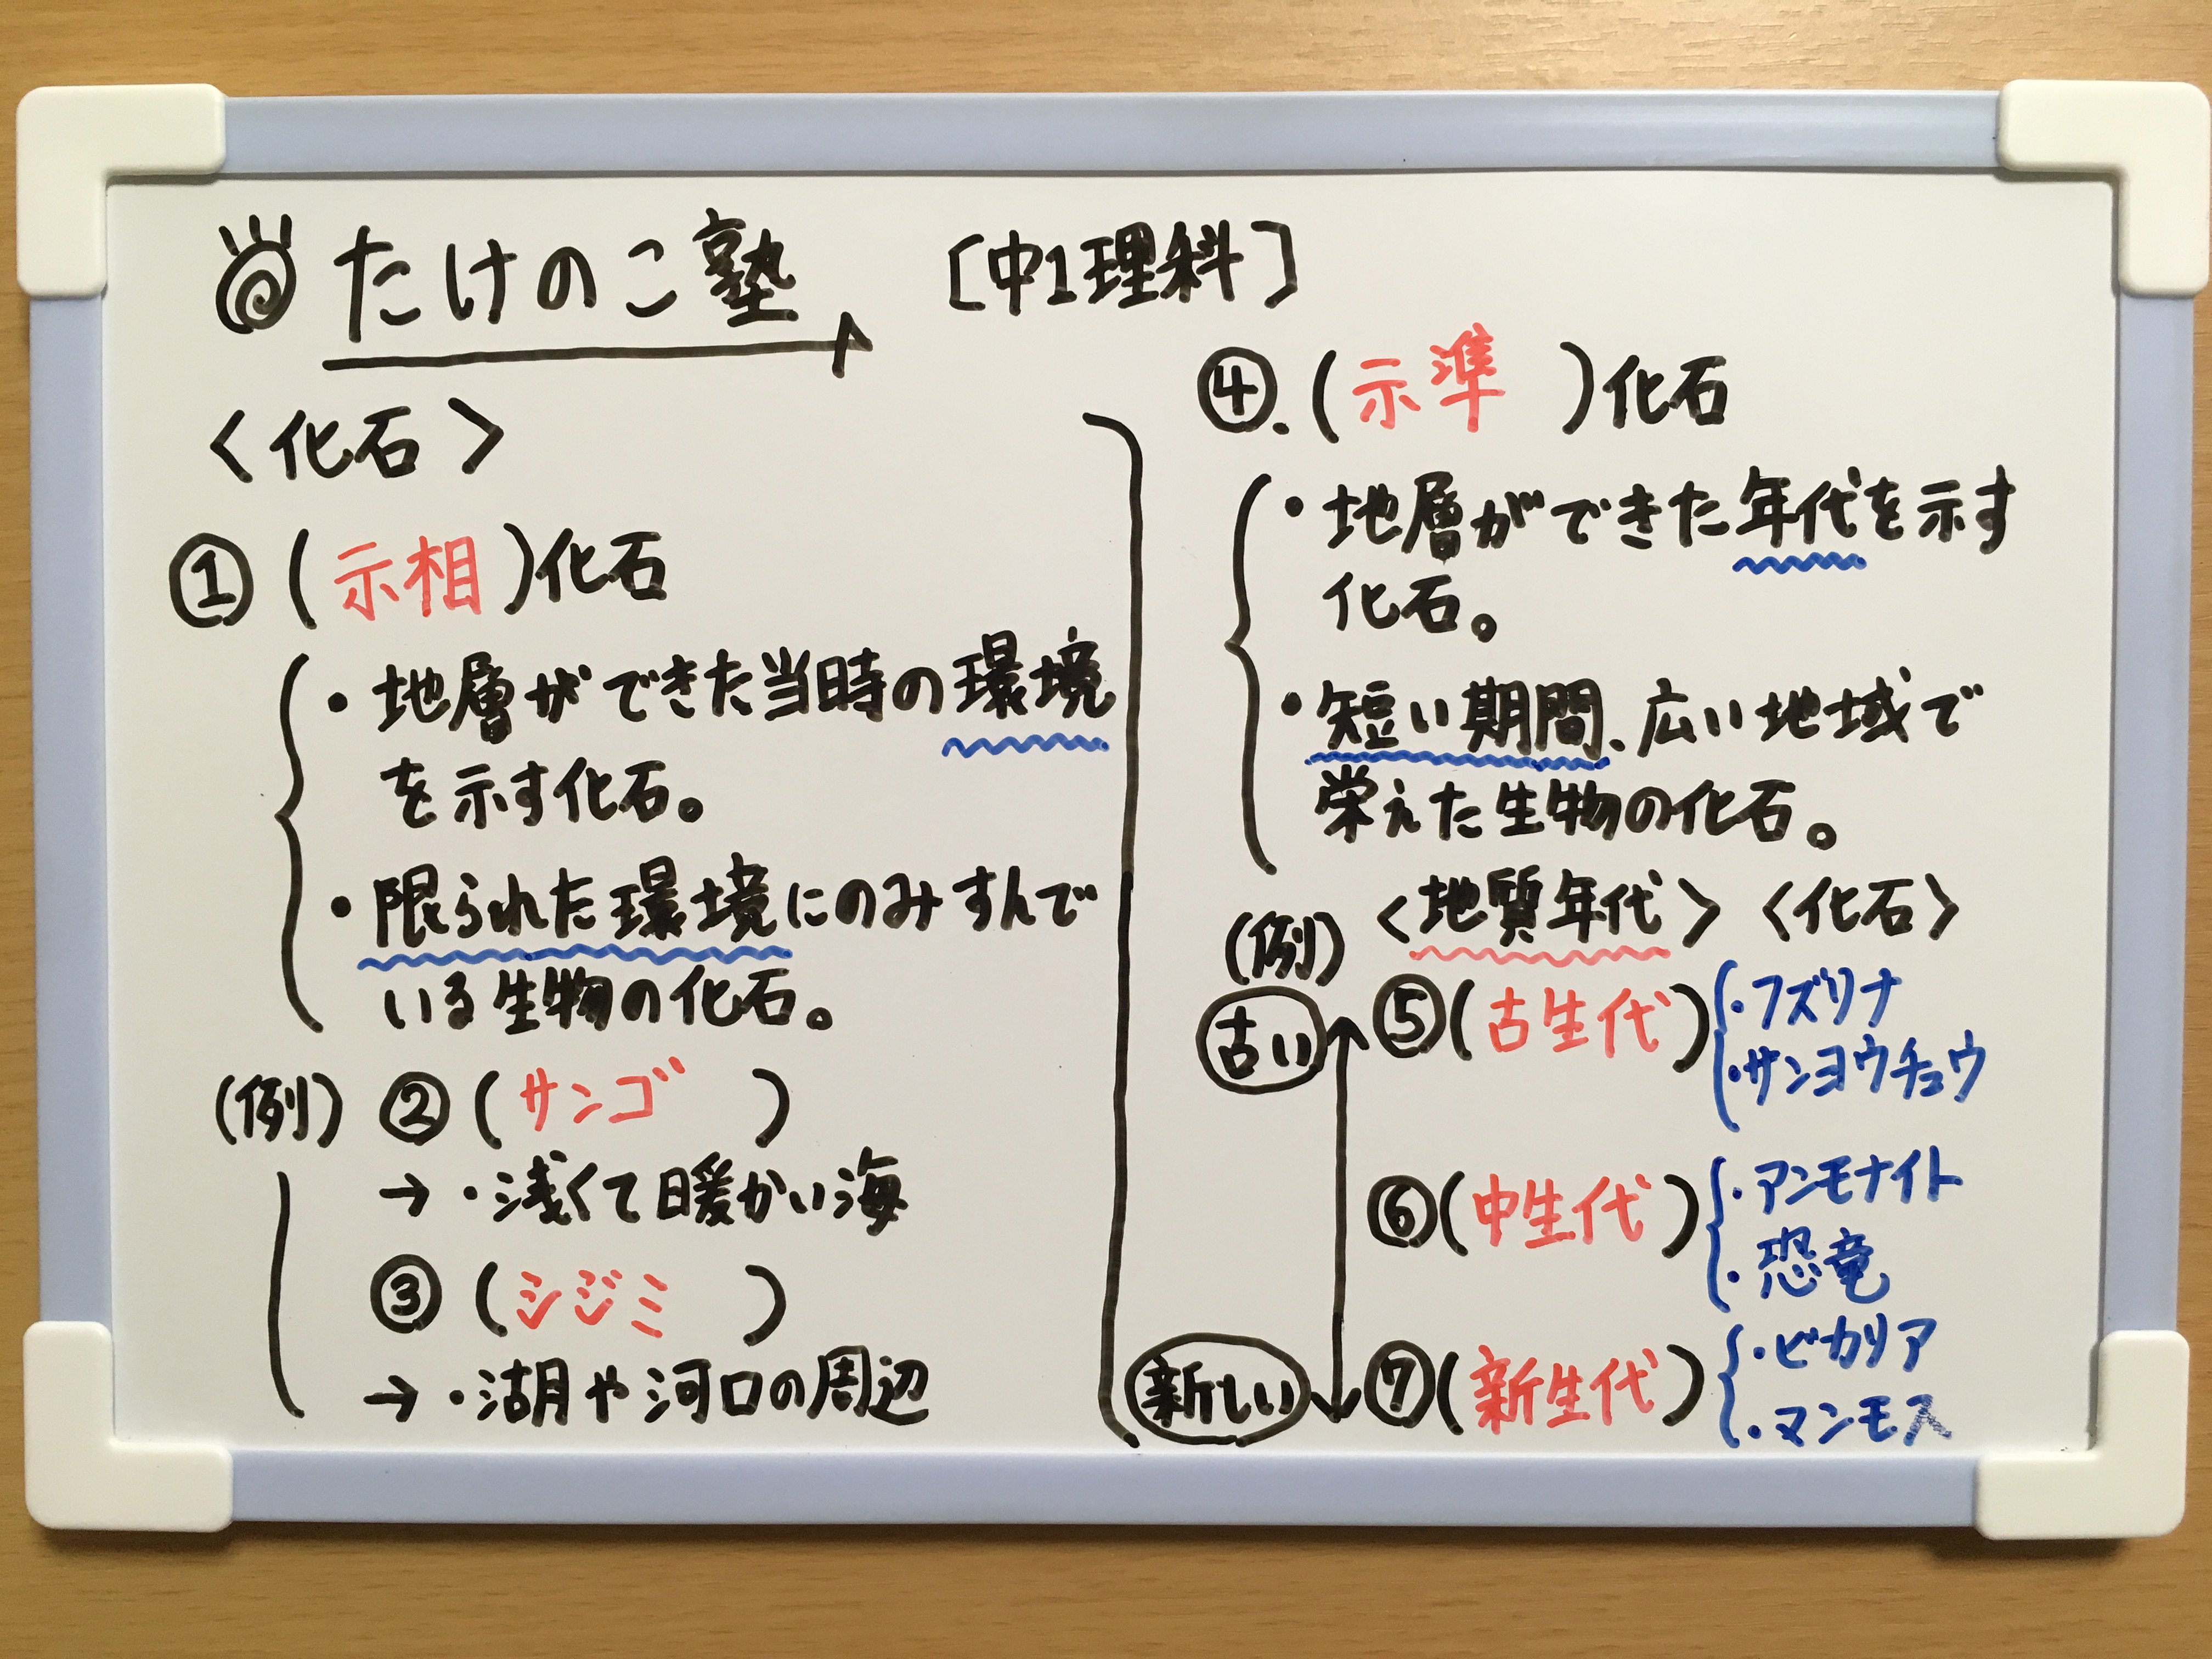 たけのこ塾 [中1理科]
<化石>
① (示相)化石
・地層ができた当時の環境
を示す化石。
・限られた環境にのみすんで
いる生物の化石。
(例) ② (サンゴ)
→ ・浅くて暖かい海
③ (シジミ)
→ ・湖や河口の周辺
④. (示準)化石
・地層ができた年代を示す
化石。
・短い期間、広い地域で
栄えた生物の化石。
(例) <地質年代> <化石>
古い ⑤(古生代) ・フズリナ
・サンヨウチュウ
⑥(中生代) ・アンモナイト
・恐竜
新しい ⑦(新生代) ・ビカリア
・マンモス